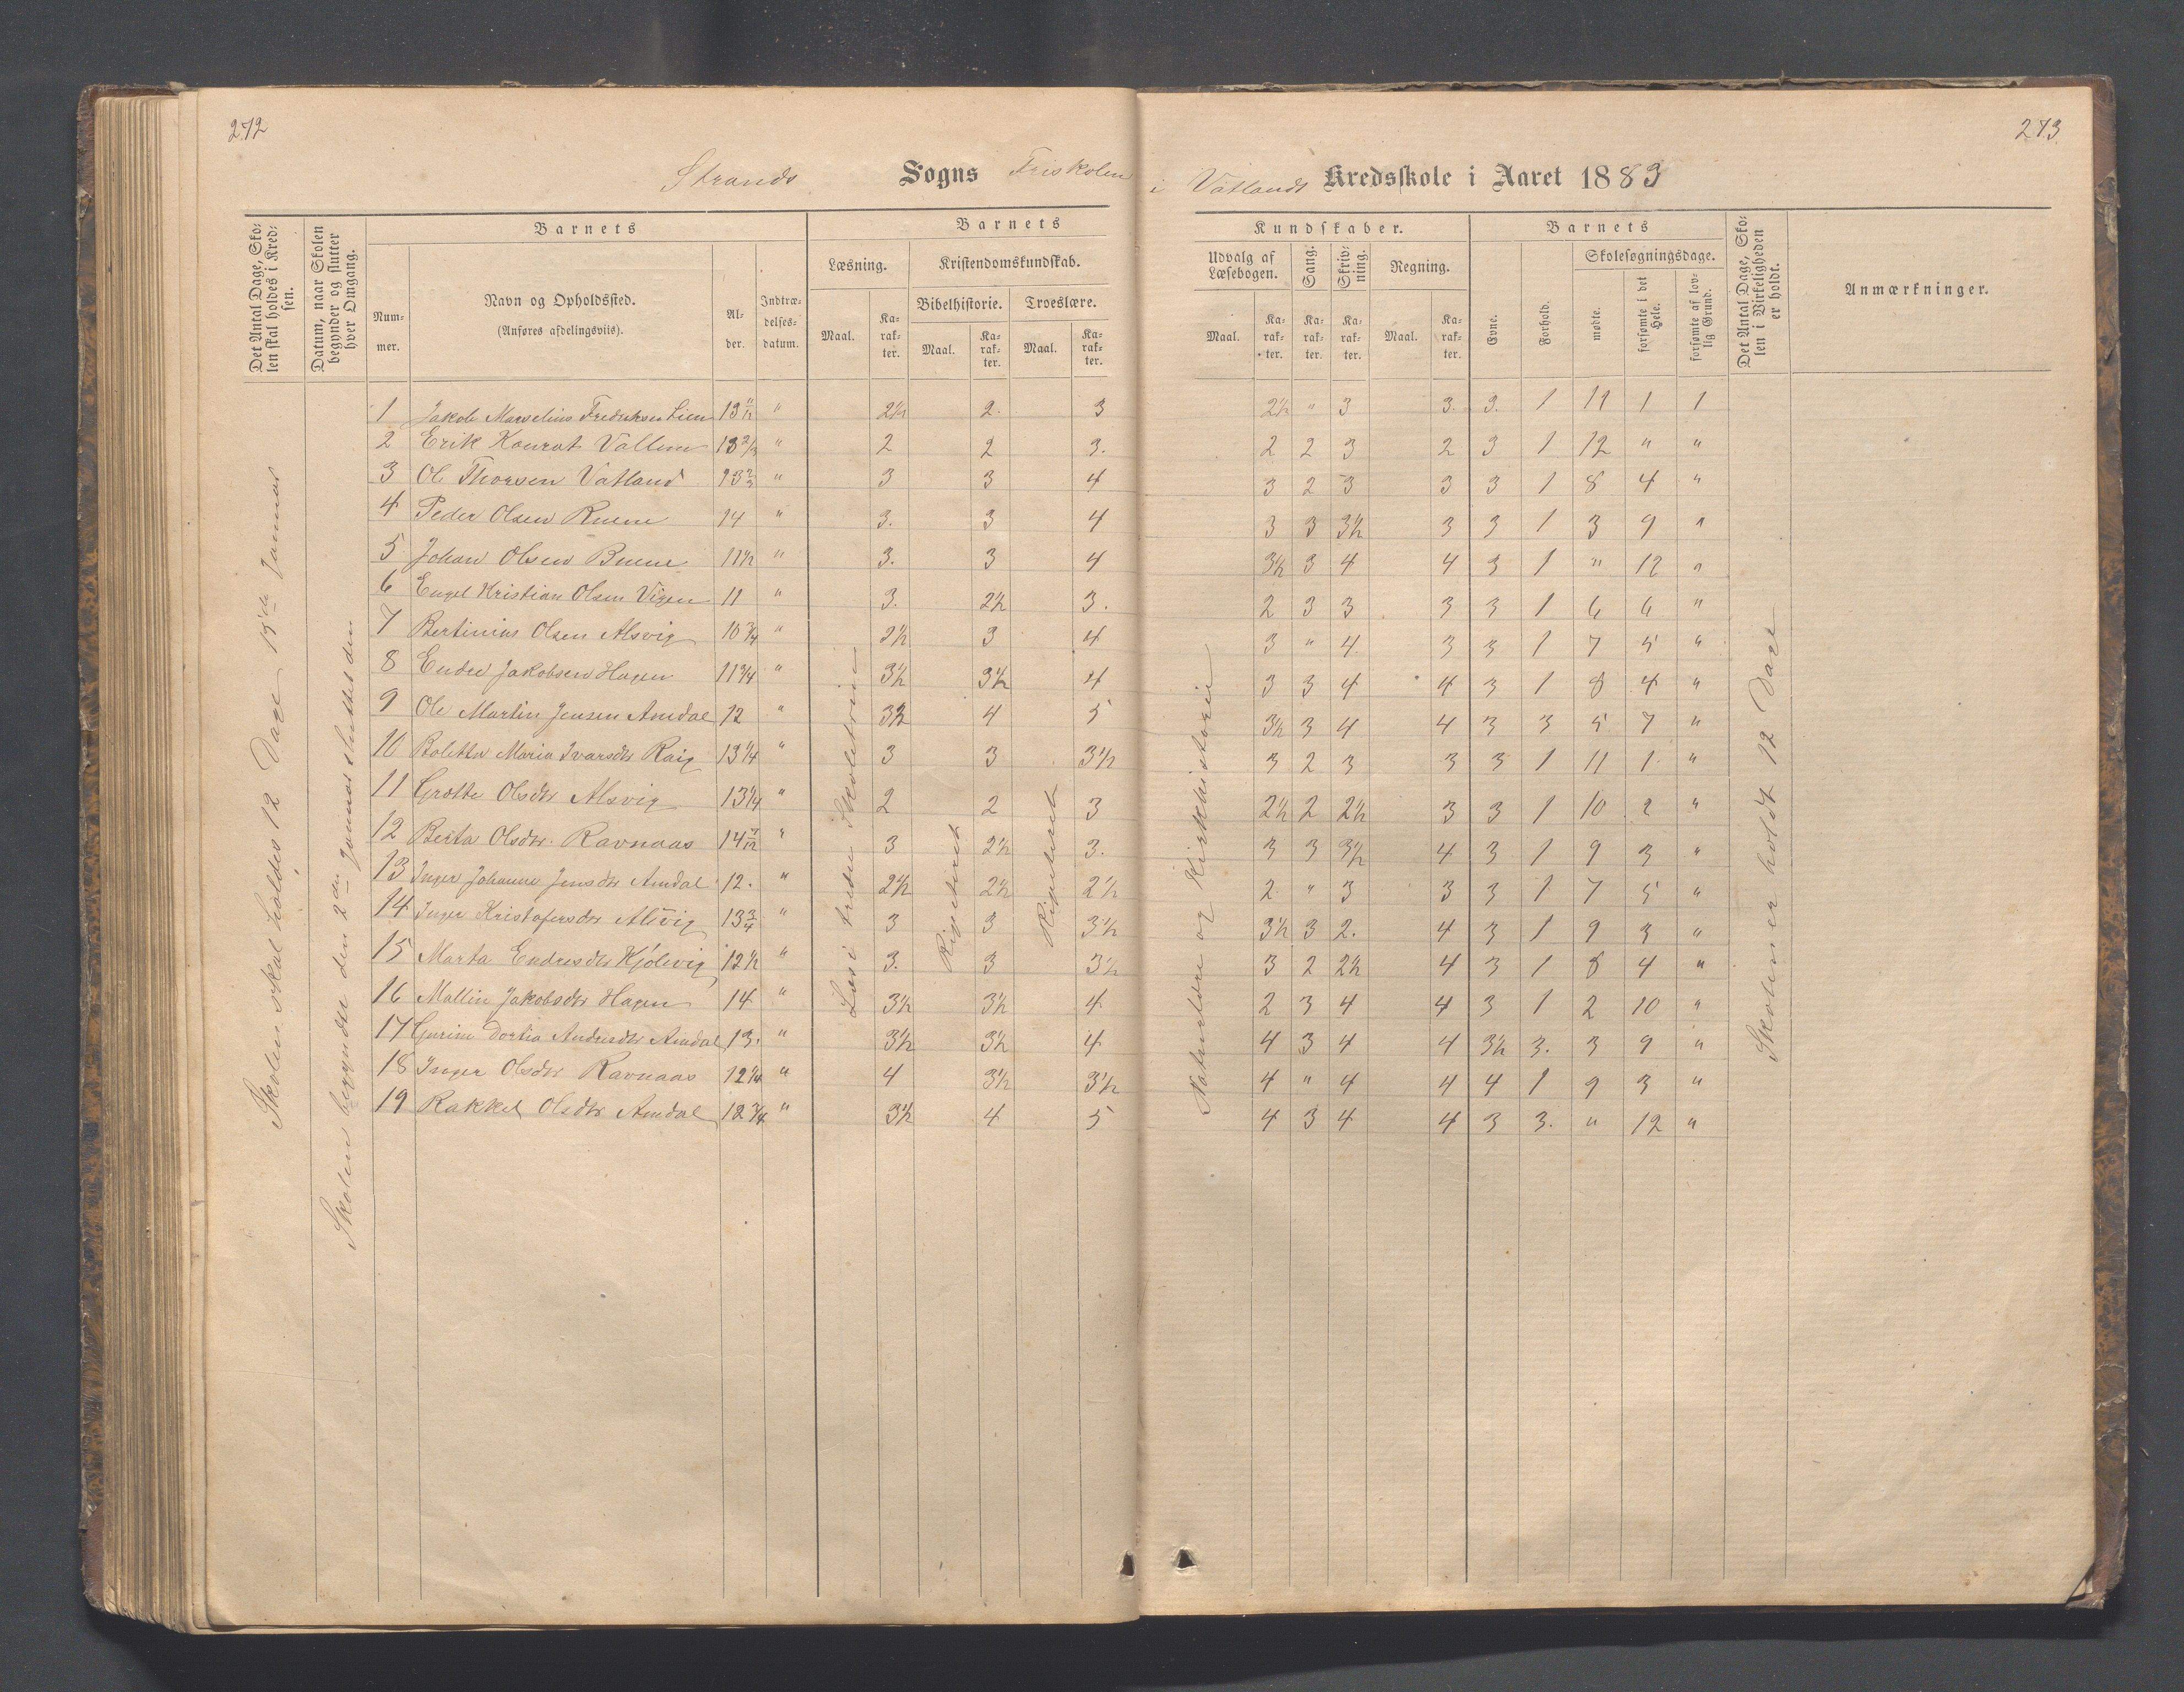 272
273
Strands Sogns Friskolen i Vatlands Kredsskole i Aaret 1883
Det Antal Dage, Sko-
len skal holdes i Kred-
sen.
Datum, naar Skolen
begynder og slutter
hver Omgang.
Barnets
Num-
mer.
Navn og Opholdssted.
(Anføres afdelingsviis).
Al-
der.
Indtræ-
delses-
datum.
Barnets
Læsning.
Kristendomskundskab.
Bibelhistorie. Troeslære.
Maal. Ka-
rak-
ter. Maal. Ka-
rak-
ter. Maal. Ka-
rak-
ter.
Kundskaber.
Udvalg af
Læsebogen.
Sang.
Skriv-
ning.
Regning.
Maal. Ka-
rak-
ter. Ka-
rak-
ter. Ka-
rak-
ter. Maal. Ka-
rak-
ter.
Barnets
Evne.
Forhold.
Skolesøgningsdage.
mødte.
forsømte i det
Hele.
forsømte af lov-
lig Grund.
Det Antal Dage, Sko-
len i Virkeligheden
er holdt.
Anmærkninger.
Skolen skal holdes 12 Dage 15de Januar
Skolen begyndte den 2den Januar sluttet den
Læs i tredie Skoletrin
Repeteret
Repeteret
Naturlære og Kirkehistorie
Skolen er holdt 12 Dage
1 Jakob Marselius Fredriksen Lien 13 11/12 " 2½ 2. 3 2½ " 3 3. 3. 1 11 1 1
2 Erik Konrat Vallem 13 2/3 " 2 2 3. 2 2 3 2 3 1 12 " "
3 Ole Thorsen Vatland 13 2/3 " 3 3 4 3 2 3 3 3 1 8 4 "
4 Peder Olsen 14 " 3. 3 4 3 3 3½ 3 3 1 3 9 "
5 Johan Olsen 11½ " 3. 3 4 3½ 3 4 4 3 1 " 12 "
6 Engel Kristian Olsen Vigen 11 " 3. 2½ 3. 2 3 3 3 3 1 6 6 "
7 Bertinius Olsen Alsvig 10 3/4 " 2½ 3 4 3 " 4 3 3 1 7 5 "
8 Endre Jakobsen Hagen 11 3/4 " 3½ 3½ 4 3 3 4 4 3 1 8 4 "
9 Ole Martin Jensen Amdal 12 " 3½ 4 5 3½ 3 4 4 3 3 5 7 "
10 Boletta Maria Ivarsdtr Raig 13¼ " 3 3 3½ 3 2 3 3 3 1 11 1 "
11 Grotte Olsdtr Alsvig 13¼ " 2 2 3 2½ 2 2½ 3 3 1 10 2 "
12 Berta Olsdtr. Ravnaas 14 7/12 " 3 2½ 3. 3 3 3½ 4 3 1 9 3 "
13 Inger Johanne Jensdtr Amdal 12. " 2½ 2½ 2½ 2 " 3 3 3 1 7 5 "
14 Inger Kristofersdtr Alsvig 13 3/4 " 3 3 3½ 3½ 3 2. 4 3 1 9 3 "
15 Marta Endresdtr Kjølevig 12½ " 3. 3 3½ 3 2 2½ 4 3 1 8 4 "
16 Mallin Jakobsdtr Hagen 14 " 3½ 3½ 4 2 3 4 4 3 1 2 10 "
17 Gurine Dortia Andresdtr Amdal 13. " 3½ 3½ 4 4 3 4 4 3½ 3. 3 9 "
18 Inger Olsdtr Ravnaas 12¼ " 4 3½ 3½ 4 " 4 4 4 1 9 3 "
19 Rakkel Olsdtr Amdal 12 3/4 " 3½ 4 5 4 3 4 4 3 3. " 12 "